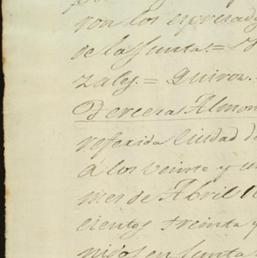 ron los expresad
de la Junta.=
zales.= Quiros.
Tercera Almon
referida Ciudad de
á los veinte y u
mes de Abril
cientos treinta y
nidos en Junta